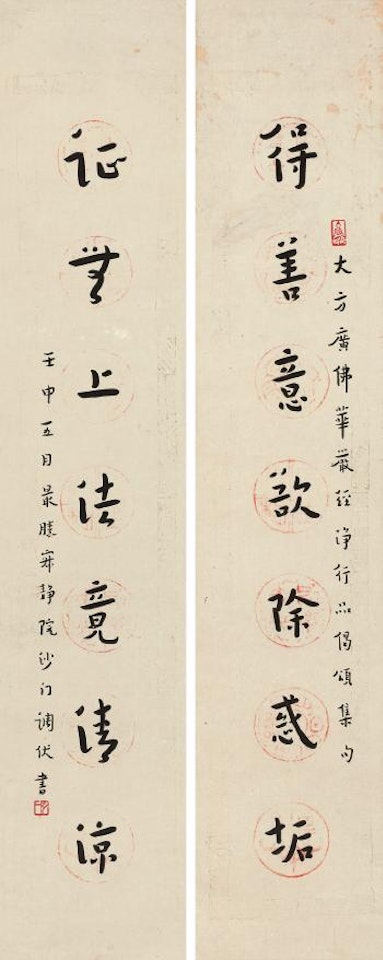 大方廣佛華嚴經淨行品偈頌集句
得善意欲除惑垢
证無上法竟清凉
壬申五月最勝寂靜院沙门调伏書